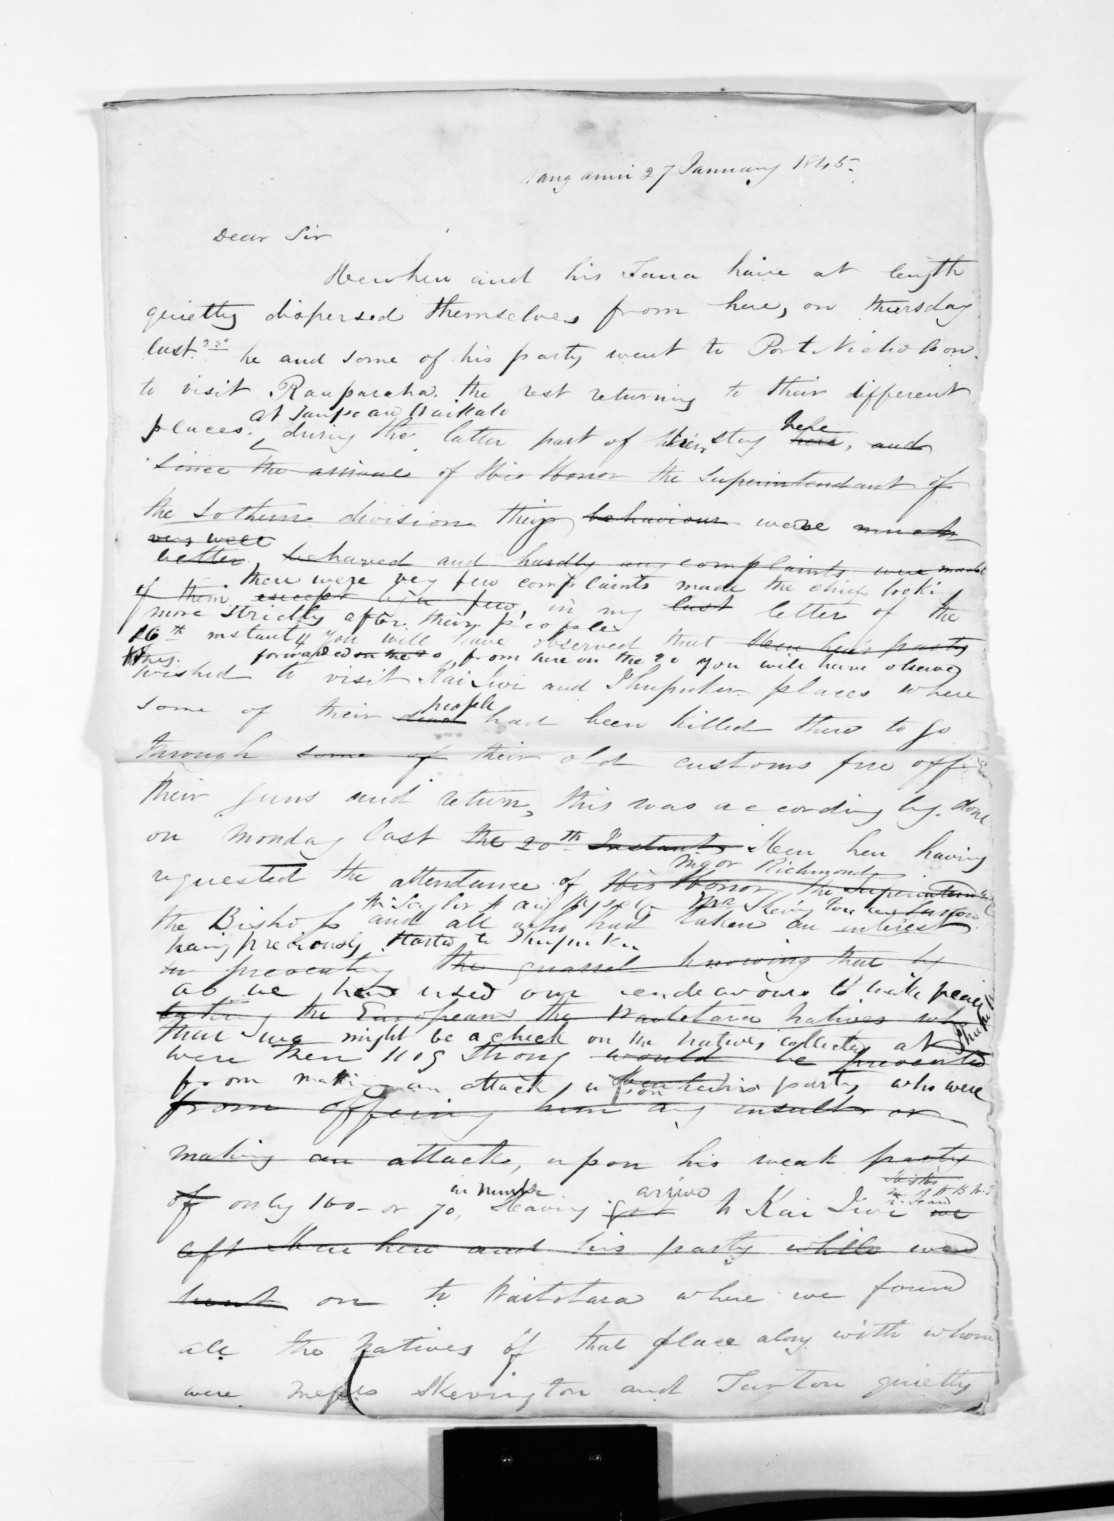 27 January 1845.
Dear Sir
Heuheu and his Taua have at length
quietly dispersed themselves from here, on thursday
last he and some of his party went to Port Nicholson.
to visit Rauparaha. the rest returning to their different
at Taupo and Waikato
places. during the latter part of their stay here, and
here
since the arrival of His Honor the Superintendant of
the Sothern division they behaviour were much
very well
better behaved and hardly any complaints were made
there were very few complaints made the chiefs
of them except a few, in my last letter of the
more strictly after their people
16th instant you will have observed that Heu heu's party
forwarded on the 20 from here on the 20 you will have observed
they
wished to visit Kai Iwi and places where
people
some of their had been killed there to go
through some of their old customs fire off
their guns and return, this was accordingly done
on Monday last the 20th Instant Heu heu having
Major Richmond
requested the attendance of His Honor the
the Bishop and all who had taken an interest
having previously started to
in preventing the quarrel knowing that by
as we have used our endeavours to make peace
the Europeans the Waitotara natives who
that we might be a check on the natives collected at
were then 400 strong would be prevented
from making an attack upon Heu heus party who were
from offering him any insult or
making an attack, upon his weak party
in number
of only 160 or 70, Having arrived
got to Kai Iwi we
left Heu heu and his party while we
went on to Waitotara where we found
all the natives of that place along with whom
were Messrs Skevington and Turton quietly